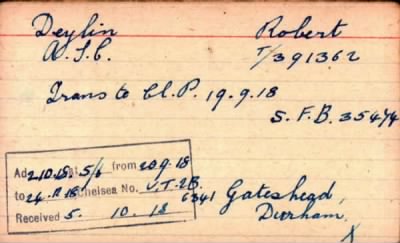 Deylin Robert
A.S.C. T/391362
Trans to Cl. P. 19.9.18
S.F.B. 35474
Ad 2.10.18. at 5/6 from 20.9.18
to 24. 12. 18 Chelsea No. U.T.2B.
6341
Received 5. 10. 18
Gateshead,
Durham,
X